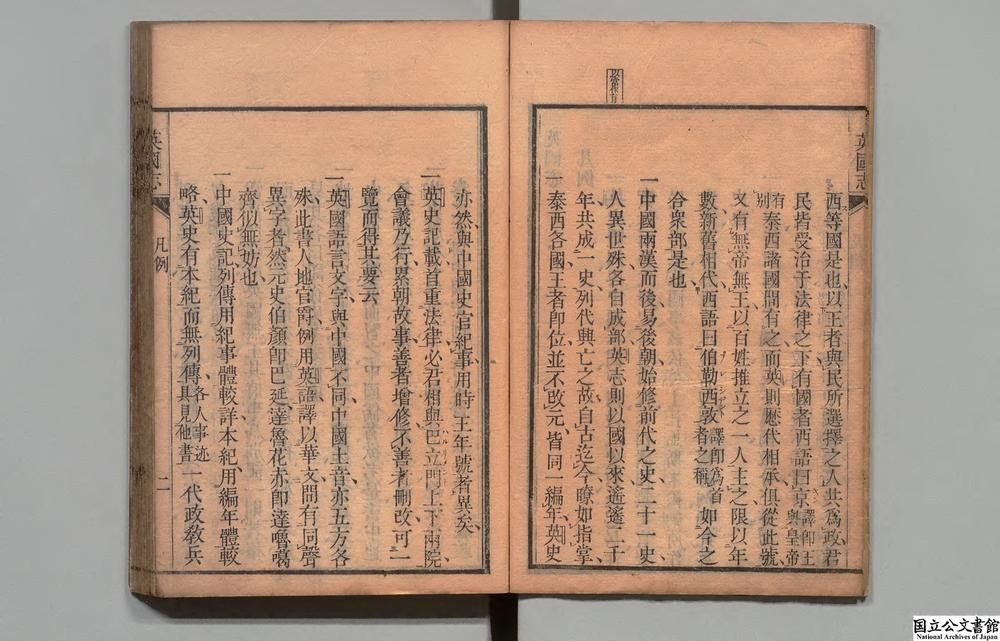 英國志
西等國是也以王者與民所選擇之人共爲政君
民皆受治于法律之下有國者西語曰京譯卽王與皇帝
有別泰西諸國間有之而英則歷代相承俱從此號
又有無帝無王以百姓推立之一人主之限以年
數新舊相代西語曰伯勒西敦譯卽爲首者之稱如今之
合衆部是也
一中國兩漢而後易後朝始修前代之史二十一史
人異世殊各自成部英志則以國以來遙遙二千
年共成一史列代興亡之故自古迄今瞭如指掌
一泰西各國王者卽位並不改元皆同一編年英史
亦然與中國史官紀事用時王年號者異矣
一英史記載首重法律必君相與巴立門上下兩院
會議乃行累朝故事善者增修不善者刪改可一
覽而得其要云
一英國語言文字與中國不同中國土音亦五方各
殊此書人地官爵例用英語譯以華文間有同聲
異字者然元史伯顏卽巴延達魯花亦卽達嚕噶
齊似無妨也
一中國史記列傳用紀事體較詳本紀用編年體較
略英史有本紀而無列傳各人事迹具見他書一代政敎兵
英國志
凡例
二
国立公文書館
National Archives of Japan